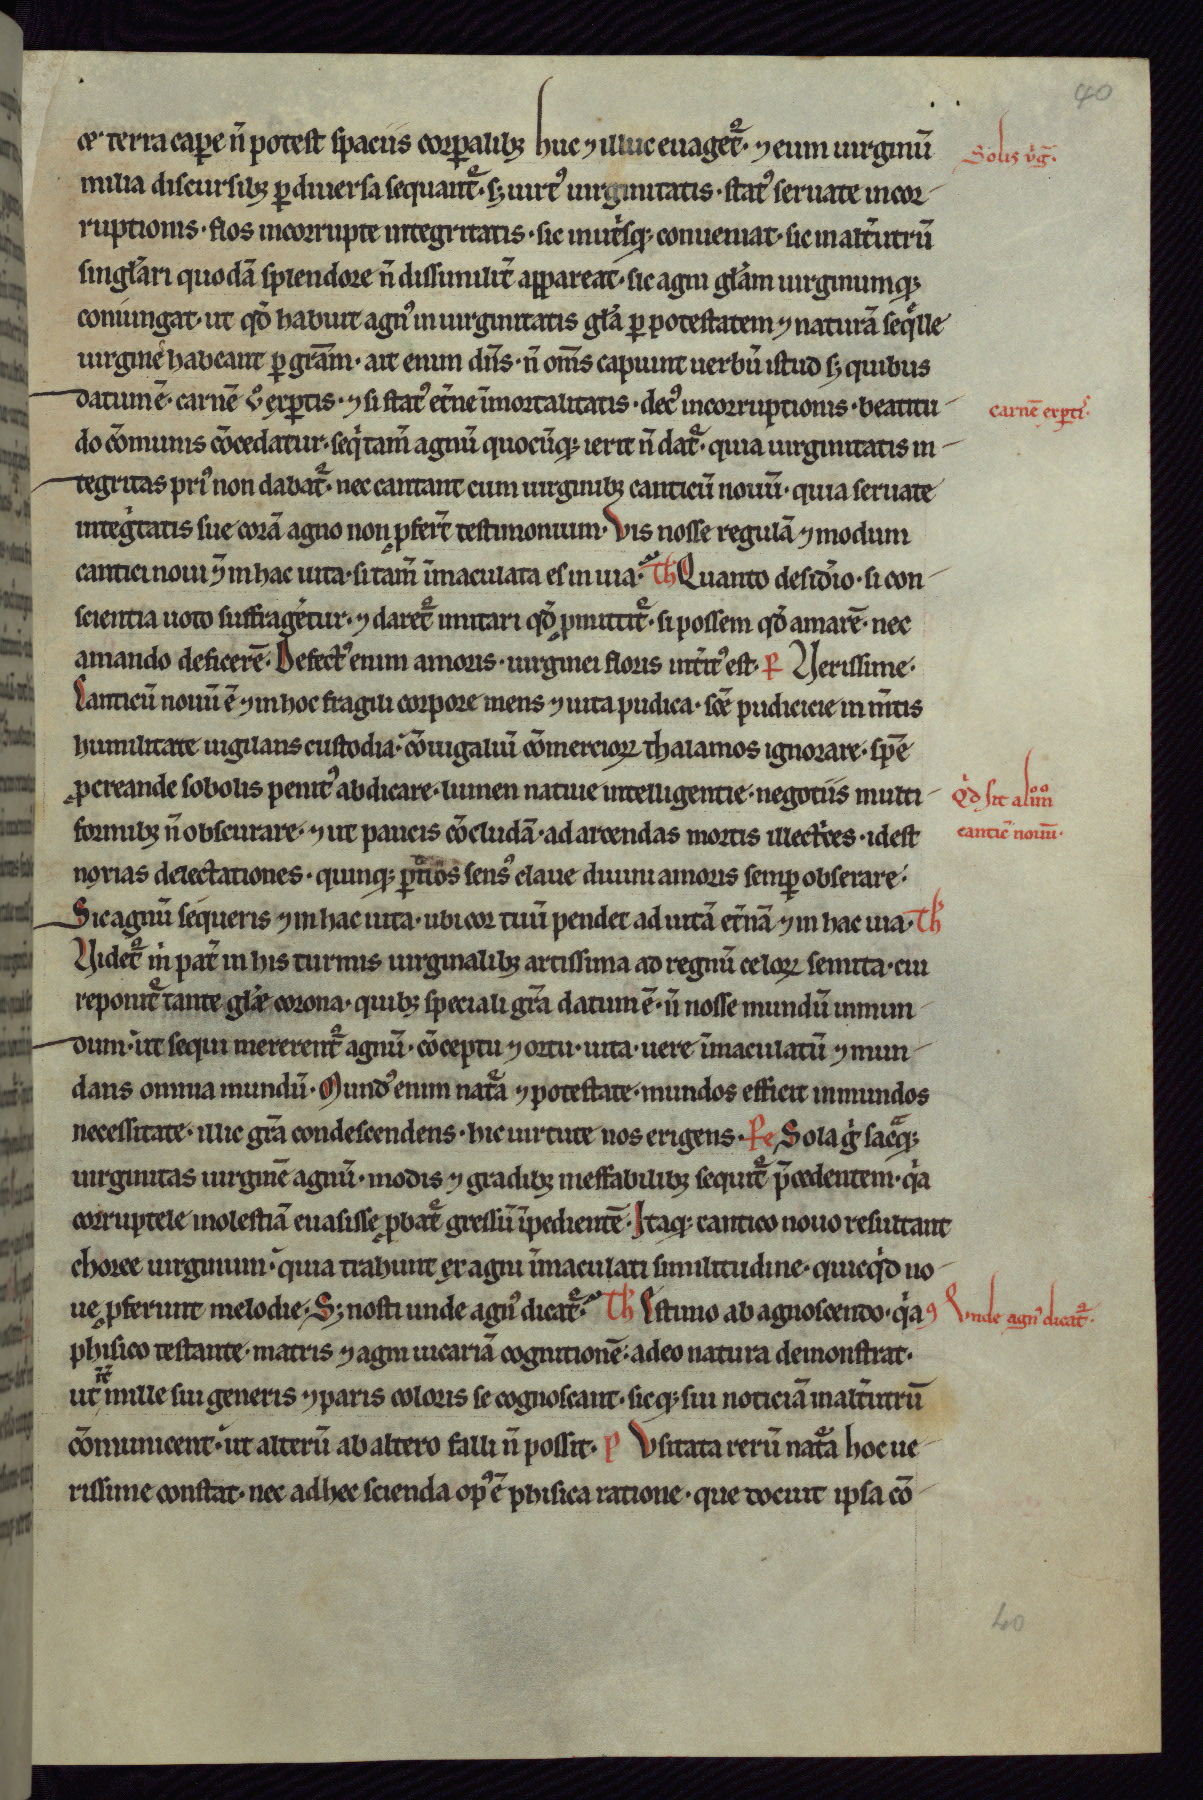 40
ce terra cape n̄ potest spaciis corꝑalibꝫ huc ⁊ illuc euaget᷑· ⁊ eum uirginū
Solis ṽg̃·
milia discursibꝫ ꝑ diuersa sequant᷑· sꝫ uirt᷒ uirginitatis· stat᷒ seruate incor-
ruptionis· flos incorrupte integritatis· sic in utͥsqꝫ conueniat· sic in alt̄utrū
singl̃ari quodā splendore n̄ dissimilit̃ appareat· sic agni gl̃am uirginumqꝫ
coniungat· ut qd̃ habuit agn᷒ in uirginitatis gl̃a ꝑ potestatem ⁊ naturā seq̃lle
uirginē habeant ꝑ gr̃am· ait enim dñs· n̄ om̃s capiunt uerbū istud sꝫ quibus
datum ē· carnē ũ exꝑtis· ⁊ si stat᷒ et̃ne īmortalitatis· dec᷒ incorruptionis· beatitu-
carnē exꝑti·
do cōmunis cōcedatur· seqͥ tam̃ agnū quocūqꝫ ierit n̄ dat᷑· quia uirginitatis in-
tegritas pri᷒ non dabat᷑· nec cantant cum uirginibꝫ canticū nouū· quia seruate
integͥtatis sue corā agno non ꝓfert̃ testimonium· Vis nosse regulā ⁊ modum
cantici noui ⁊ in hac uita· si tam̃ īmaculata es in uia· Th Quanto desid̃io· si con-
scientia uoto suffraget̃ur· ⁊ daret᷑ imitari qd̃ ꝓmittit᷑· si possem qd̃ amarē· nec
amando deficerē· Defect᷒ enim amoris· uirginei floris int̃it᷒ est· P Verissime·
Canticū nouū ē ⁊ in hoc fragili corpore mens ⁊ uita pudica· sc̃e pudicicie in m̃tis
humilitate uigilans custodia· cōiugaliū cōmercioꝝ thalamos ignorare· spē
ꝓcreande sobolis penit᷒ abdicare· lumen natiue intelligentie· negotiis multi-
Qͥd sit al̃im
formibꝫ n̄ obscurare· ⁊ ut paucis cōcludā· ad arcendas mortis illectͥces· id est
cantic̃ nouū·
noxias delectationes· quinqꝫ sens᷒ claue diuini amoris semꝑ obserare·
Sic agnū sequeris ⁊ in hac uita· ubi cor tuū pendet ad uitā et̃nā ⁊ in hac uia· Th
Videt᷑ m̃ pat̃ in his turmis uirginalibꝫ artissima ad regnū celoꝝ semita· cui
reponit᷑ tante gl̃e corona· quibꝫ speciali gr̃a datum ē· n̄ nosse mundū inmun-
dum· ut sequi mererent᷑ agnū· cōceptu ⁊ ortu· uita· uere īmaculatū ⁊ mun-
dans omnia mundū· Mund᷒ enim nat᷑a ⁊ potestate· mundos efficit inmundos
necessitate· illic gr̃a condescendens· hic uirtute nos erigens· Pe Sola gͥ sac᷑qꝫ
uirginitas uirginē agnū· modis ⁊ gradibꝫ ineffabilibꝫ sequit᷑ p̄cedentem· qͥa
corruptele molestiā euasisse ꝓbat᷑ gressū īpedientē· Itaqꝫ cantico nouo resultant
choree uirginum· quia trahunt ex agni īmaculati similitudine· quicqͥd no-
ue ꝓferunt melodie· Sꝫ nosti unde agn᷒ dicat᷑· Th Estimo ab agnoscendo· qͥa
Vnde agn᷒ dicat᷑·
phisico testante· matris ⁊ agni uicariā cognitionē· adeo natura demonstrat·
ut int̃ mille sui generis ⁊ paris coloris se cognoscant· sicqꝫ sui noticiā in alt̃utrū
cōmunicent· ut alterū ab altero falli n̄ possit· P Vsitata rerū nat᷑a hoc ue-
rissime constat· nec ad hec scienda op᷒ ē phisica ratione· que docuit ipsa cō-
40